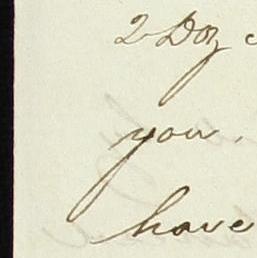 2 Doz
you.
have